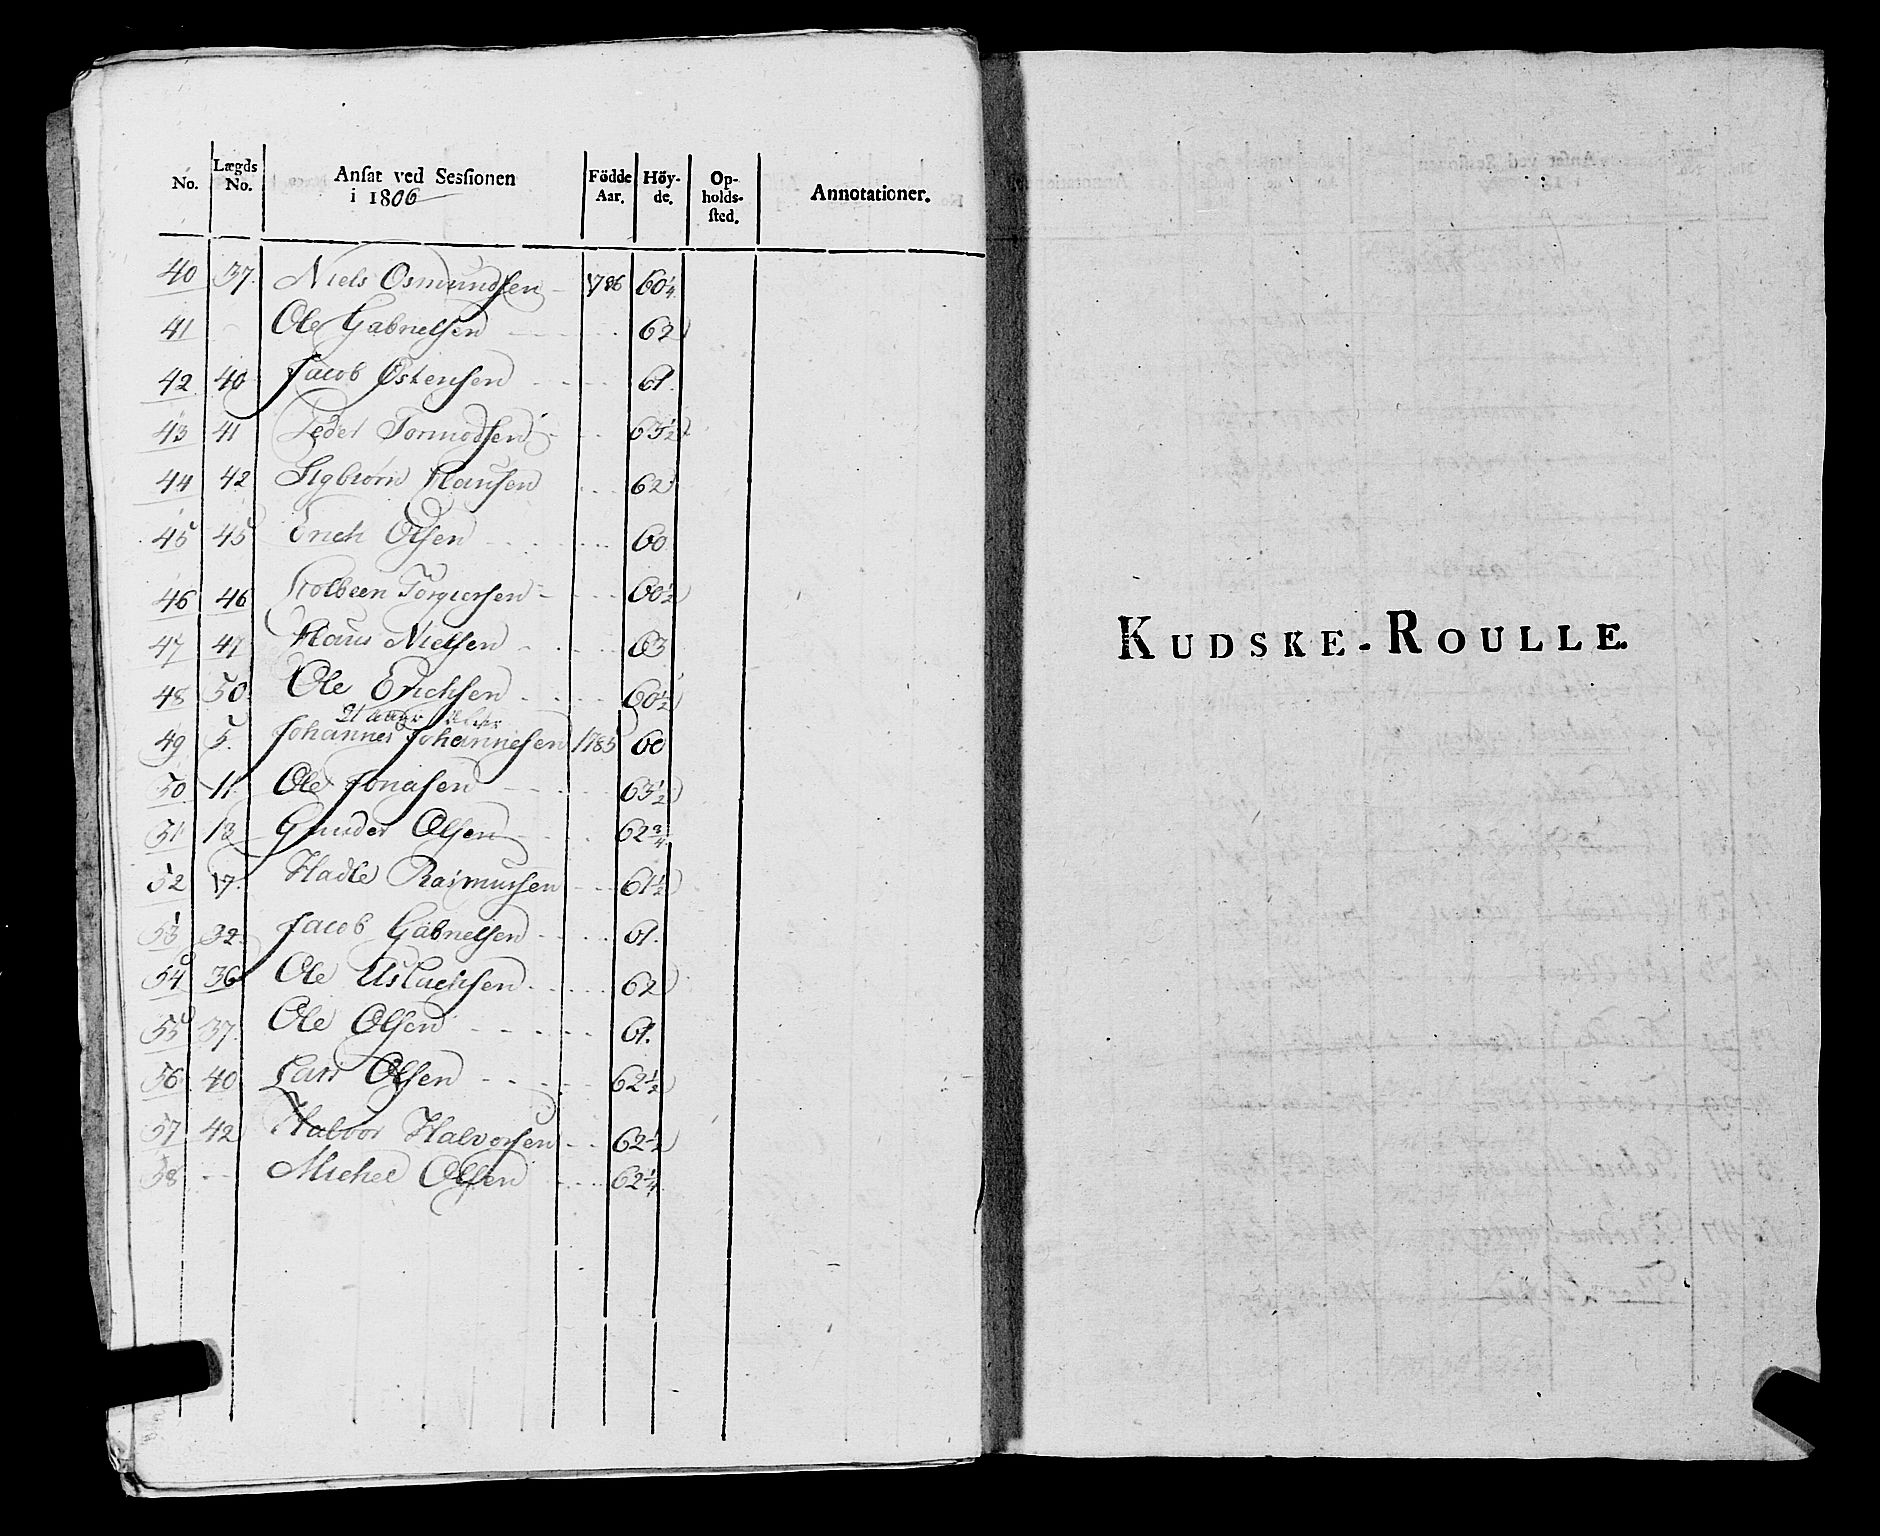 No. Lægds No. Ansat ved Sessionen i 1806 Födde Aar. Höy-de. Op-holds-sted. Annotationer.
40 37. Niels Osmundsen 1786 60 1/4
41 - Ole Gabrielsen 62
42 40 Jacob Ostensen 61.
43 41 Peder Tormodsen 63 1/2
44 42 Sigbiörn Hansen 62
45 45 Erich Olsen 60
46 46 Kolbeen Torgiersen 60 1/2
47 47 Hans Nielsen 63
48 50. Ole Erichsen 60 1/2
21 aar
49 5. Johannes Johannesen 1785 60
50 11 Ole Jonasen 63 1/2
51 13 Gunder Olsen 62 3/4
52 17. Hadle Rasmussen 61 1/2
53 32. Jacob Gabrielsen 61.
54 36 Ole Aslachsen 62
55 37. Ole Olsen 61.
56 40 Lars Olsen 62 1/2
57 42 Halvor Halvorsen 62 1/2
58 - - Michel Olsen 62 1/4
KUDSKE-ROULLE.